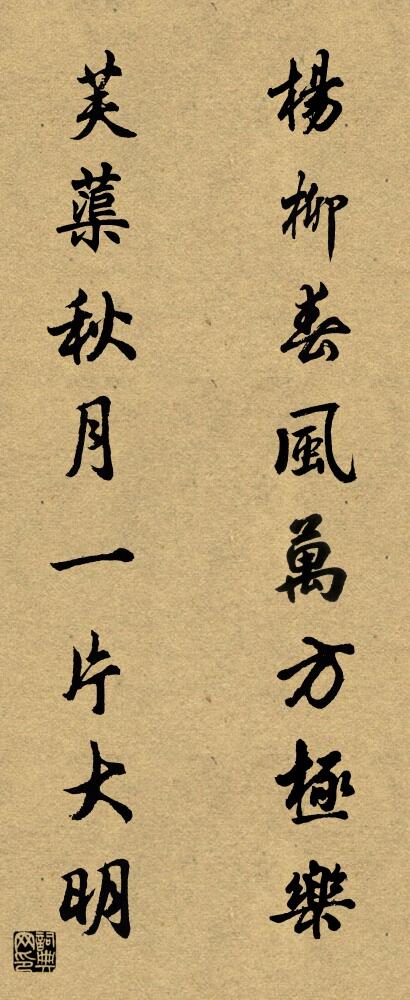 楊柳春風萬方極樂
芙蕖秋月一片大明
詞典網印